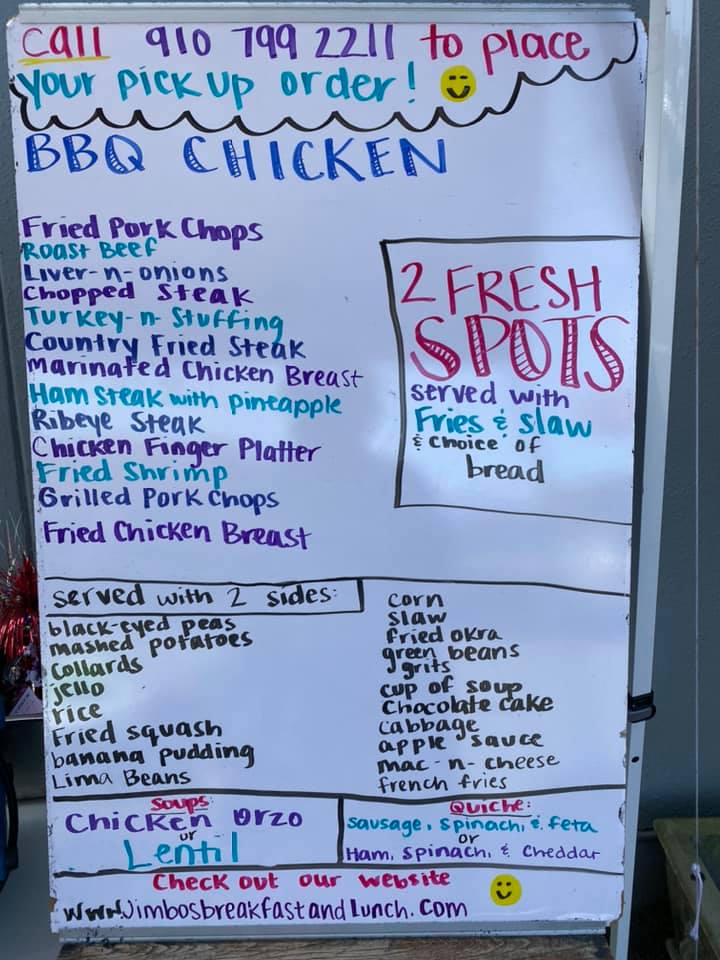 call 910 799 2211 to place
your pick up order!
BBQ CHICKEN
Fried Pork Chops
Roast Beef
Liver-n-onions
Chopped Steak
Turkey-n-Stuffing
Country Fried Steak
Marinated Chicken Breast
Ham Steak with pineapple
Ribeye Steak
Chicken Finger Platter
Fried Shrimp
Grilled Pork Chops
Fried Chicken Breast
2 FRESH
SPOTS
served with
Fries & slaw
& choice of
bread
served with 2 sides:
black-eyed peas
mashed potatoes
collards
jello
rice
Fried squash
banana pudding
Lima Beans
corn
slaw
fried okra
green beans
grits
cup of soup
Chocolate cake
cabbage
apple sauce
mac-n-cheese
french fries
Soups:
Chicken Orzo
or
Lentil
Quiche:
Sausage, Spinach, & feta
or
Ham, Spinach, & Cheddar
Check out our website
www.JimbosbreakfastandLunch.com